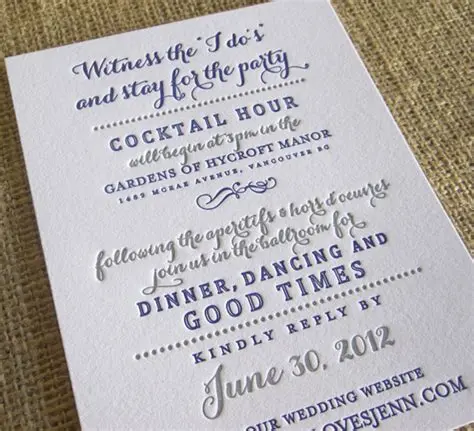 Witness the "I do's"
and stay for the party
COCKTAIL HOUR
will begin at 3pm in the
GARDENS OF HYCROFT MANOR
1489 MCRAE AVENUE, VANCOUVER BC
following the aperitifs & hors d'oeuvres
join us in the ballroom for
DINNER, DANCING AND
GOOD TIMES
KINDLY REPLY BY
June 30, 2012
OUR WEDDING WEBSITE
LOVESJENN.COM